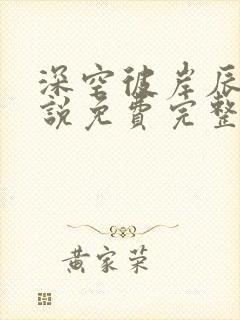 深空彼岸辰
說免費完整
黃家荣